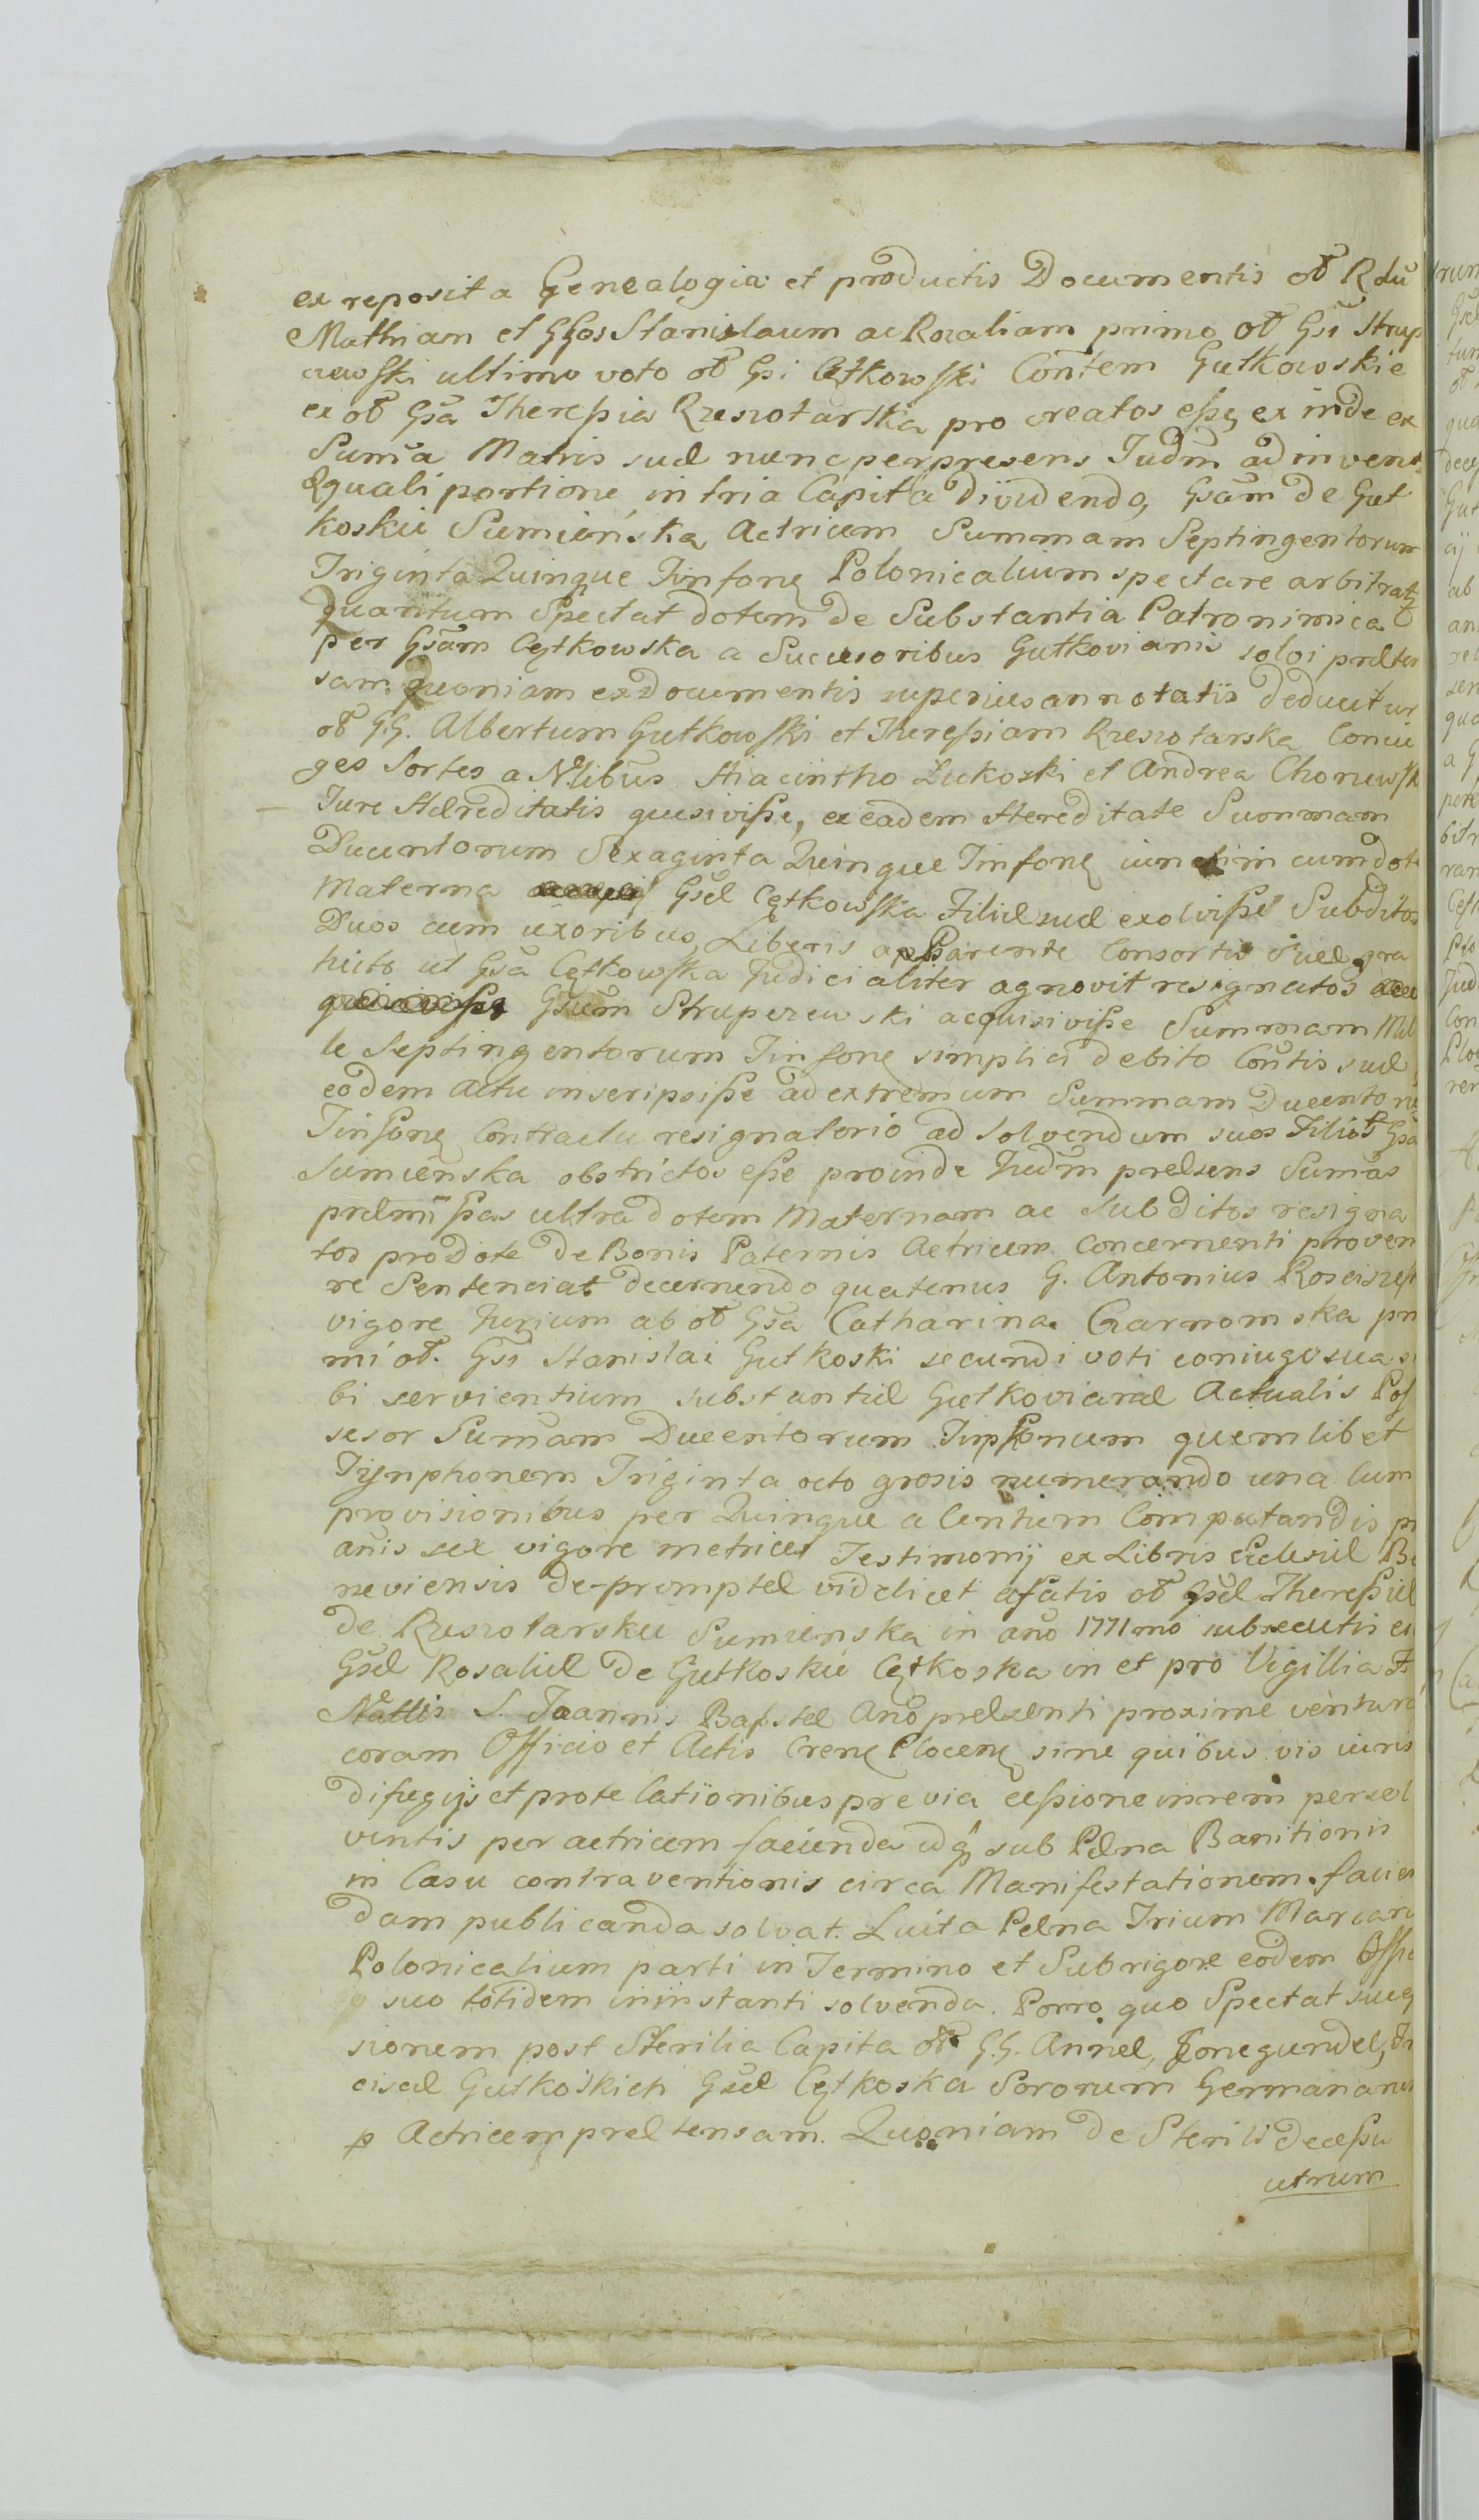 ex reposita Genealogia et productis Documentis ol Rdu
Mathiam et GGos Stanislaum ac Rozaliam primo ol Gsi Strup
czewski ultimo voto ol Gsi Cętkowski Contem Gutkowskie
ex ol Gsa Theressia Rzeszotarska procreatos esse ex inde ex
Suma Matris suæ nunc per presens Judm adinvent
æquali portione in tria Capita dividendo, Gsam de Gut
koskie Sumienska Actricem Summam Septingentorum
Triginta Quinque Tinfonę Polonicalium spectare arbitratę
Quantum Spectat dotem de Substantia Patronimica
per Gsam Cętkowska a Sucesoribus Gutkovianis solvi præten
sam. Quoniam ex documentis superius annotatis deducitur
ol GG. Albertum Gutkowski et Theressiam Rzeszotarska Coniu
ges Sortes a Nlibus Hiacintho Łukoski et Andrea Chonewsk
Jure Hæreditatis quesivisse, ex eadem Hereditate Summam
Ducentorum Sexaginta Quinque Tinfonę iunctim cum dote
Materna Gsæ Cętkowska Filiæ suæ exolvisse Subditos
Duos cum uxoribus Liberis apparente Consortis suæ gra
tuito ut Gsa Cętkowska Judicialiter agnovit resignatos
Gsum Struperewski acquisivisse Summam Mil
le Septingentorum Tinfonę simplici debito Contis suæ
eodem Actu inscripsisse ad extremum Summam Ducento
Tinfonę Contractu resignatorio ad solvendum suos Filios Gsa
Sumienska obstrictos esse proinde Judm præsens Sumas
præmissas ultra dotem Maternam ac Subditos resigna
tos pro Dote de Bonis Paternis Actricem Concernenti proven
re Sentenciat decernendo quatenus G. Antonius Rosciszes
vigore Jurium ab ol Gsa Catharina Czarnomska pri
mi ol. Gsi Stanislai Gutkoski secundi voti coniuge sua si
bi servientium substantiæ Gutkovianæ Actualis Pos
sesor Sumam Ducentorum Tinphonum quemlibet
Tijnphonem Triginta octo grosis numerando una Cum
provisionibus per Quinque a Centum Computandis pr
anis sex vigore metrices Testimonij ex Libris Eclesiæ Bo
neviensis de-promptæ videlicet a fatis ol Gsæ Theressiæ
de Rzeszotarskie Sumienska in ano 1771mo subsecutis ex
Gsæ Rosaliæ de Gutkoskie Cętkoska in et pro Vigillia F
Natlis S. Joannis Bapstæ Ano præsenti proxime venturo
coram Officio et Actis Crenę Plocenę sine quibus vis iuris
difugijs et prote lationibus previa cessione in rem persol
ventis per actricem facienda idq sub Pæna Banitionis
in Casu contraventionis circa Manifestationem facien
dam publicanda solvat. Luita Pæna Trium Marcaru
Polonicalium parti in Termino et Sub rigore eodem Offici
o suo totidem in instanti solvenda. Porro quo Spectat suces
sionem post Sterilia Capita ol GG. Annæ, Konegundæ, Fr
cisæ Gutkoskich Gsæ Cętkoska Sororum Germanarum
p Actricem prætensam. Quoniam de Sterili decessu
utrum